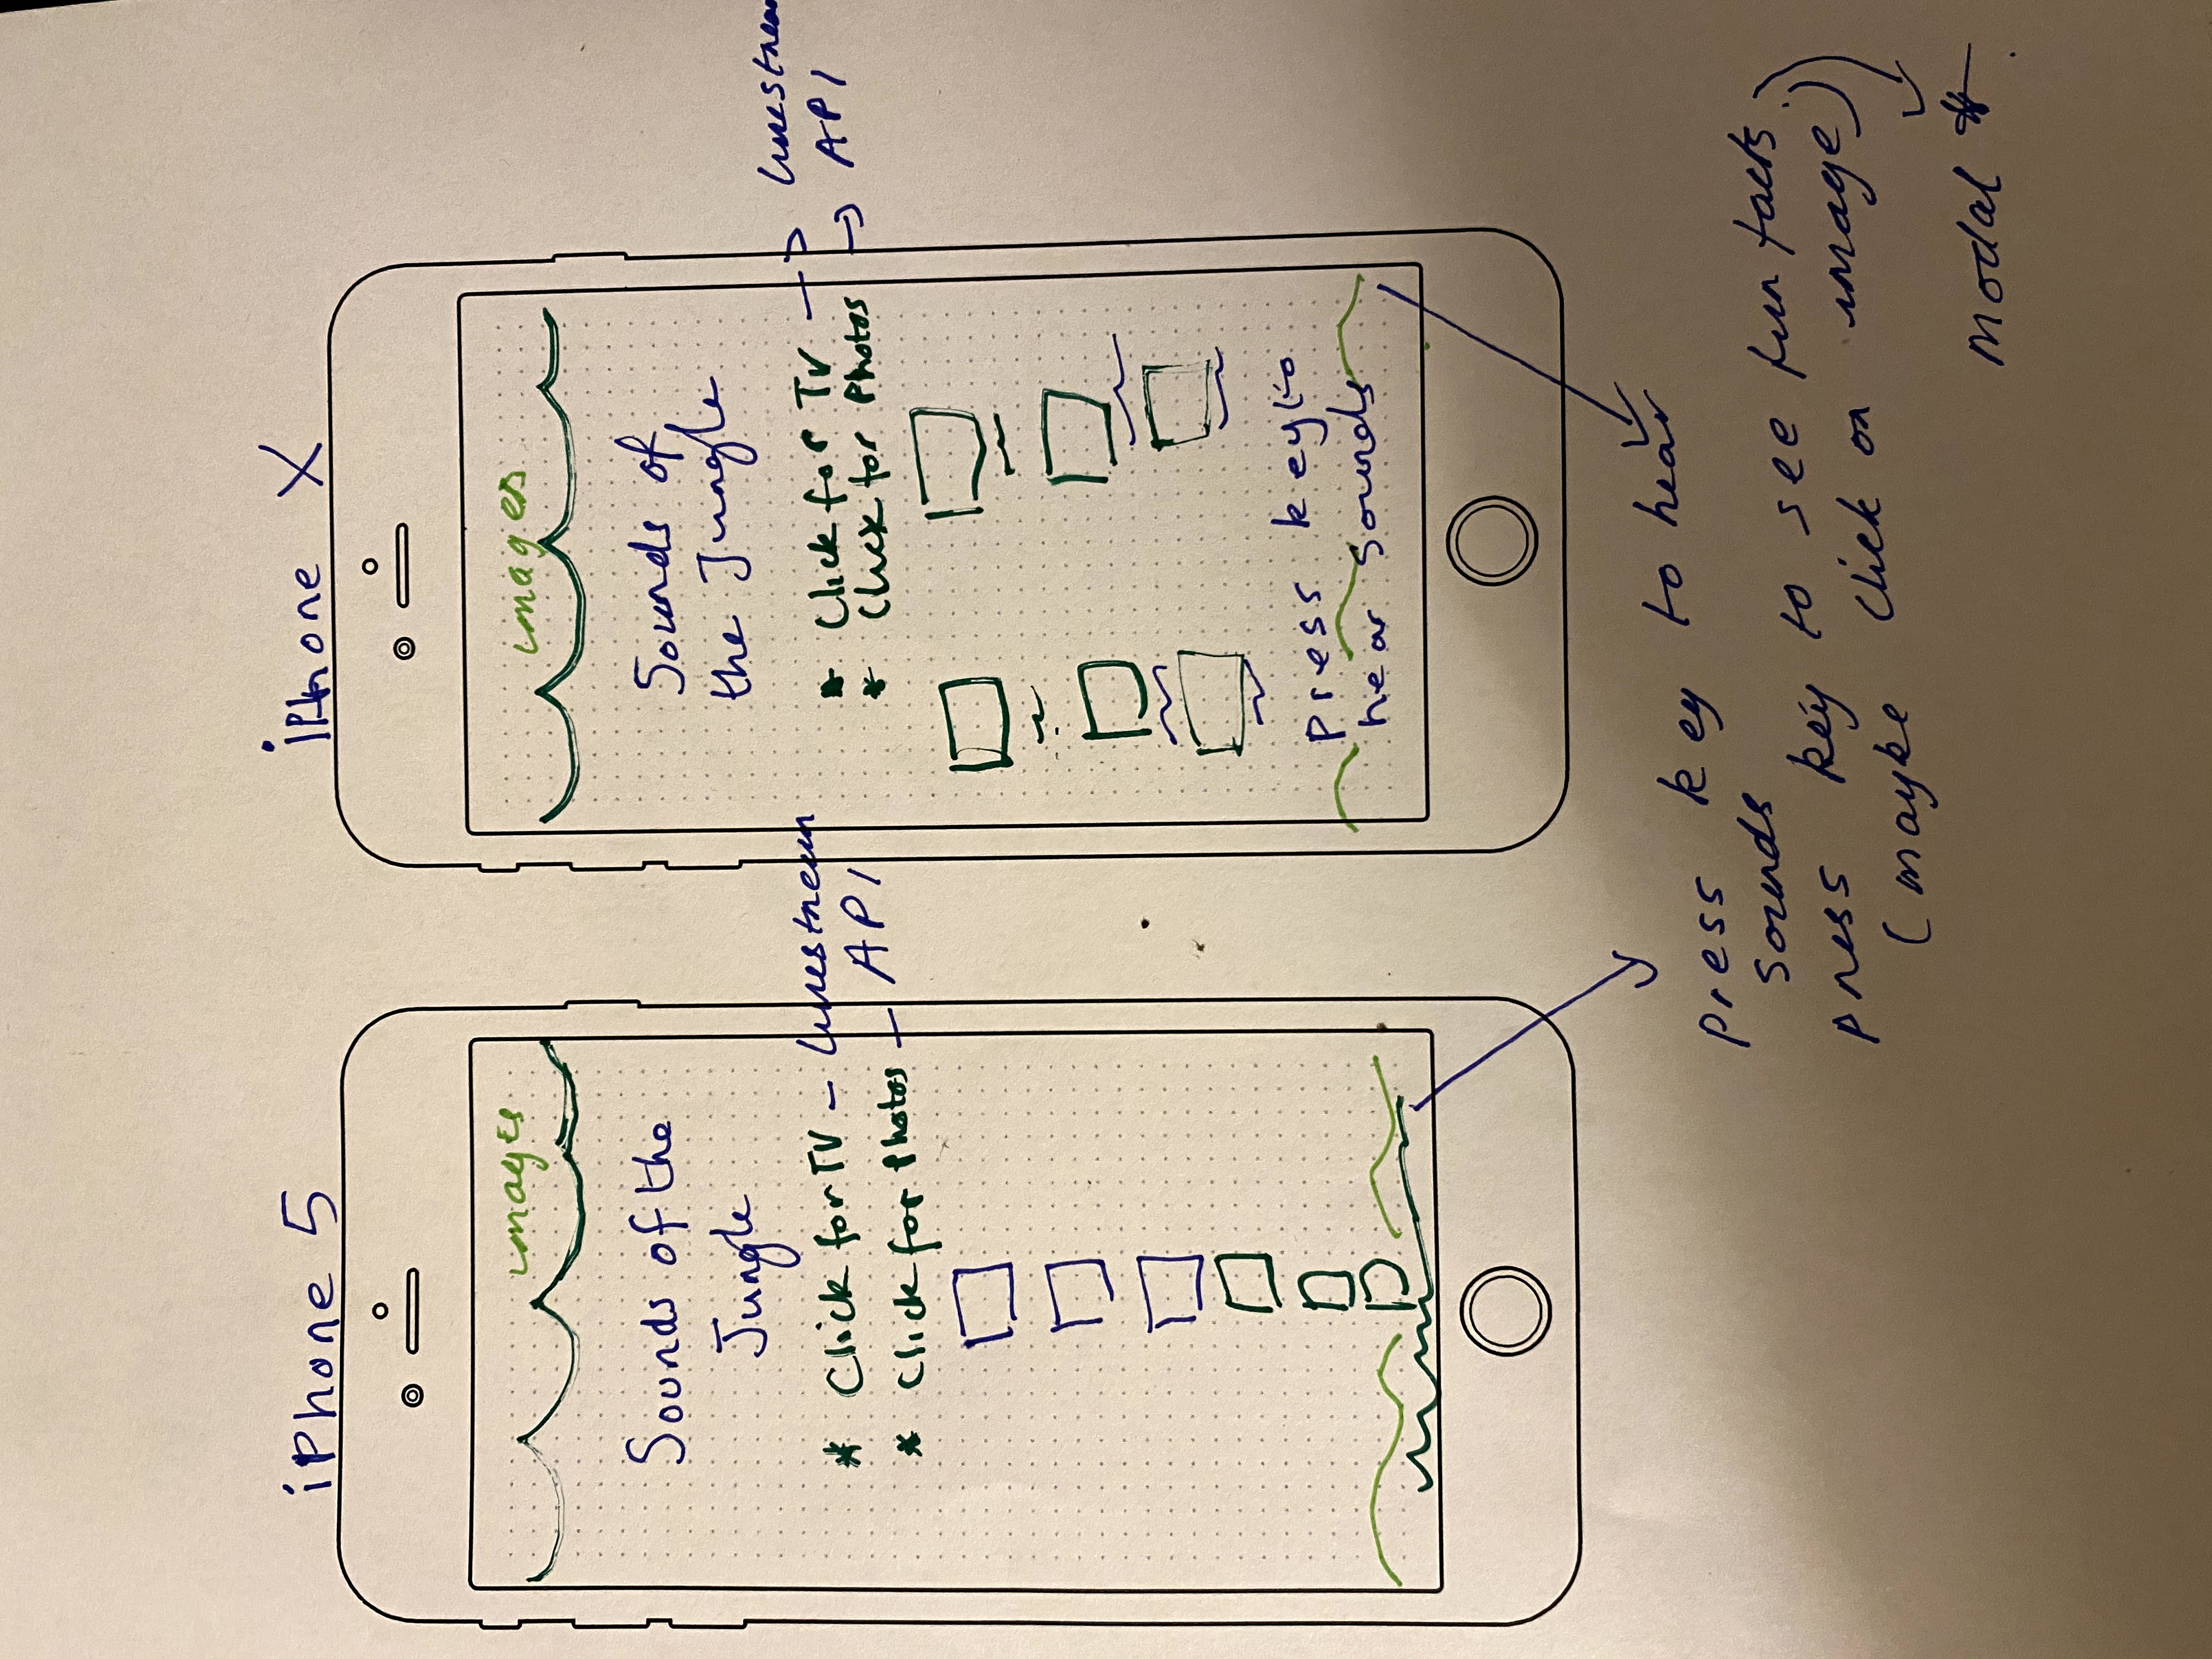 iPhone 5
images
Sounds of the
Jungle
* Click for TV - Livestream
API
* Click for Photos -
iPhone X
images
Sounds of
the Jungle
* Click for TV -> Livestream
* Click for Photos -> API
press key to
hear sounds
press key to hear
sounds
press key to see fun facts
(maybe click on image)
modal *